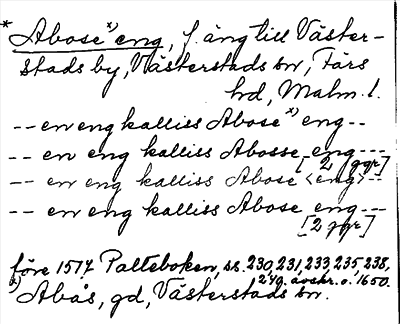 * Abose x) eng, f. äng till Väster-
stads by, Västerstads sn, Färs
hd, Malm. l.
-- en eng kalliss Abose x) eng --
-- en eng kalliss Abosse eng ---
[2 ggr]
-- en eng kalliss Abose <eng> --
-- en eng kalliss Abose eng ---
[2 ggr]
före 1517 Palteboken, ss. 230, 231, 233, 235, 238,
240. avskr. o. 1650.
x) Abås, gd, Västerstads sn.